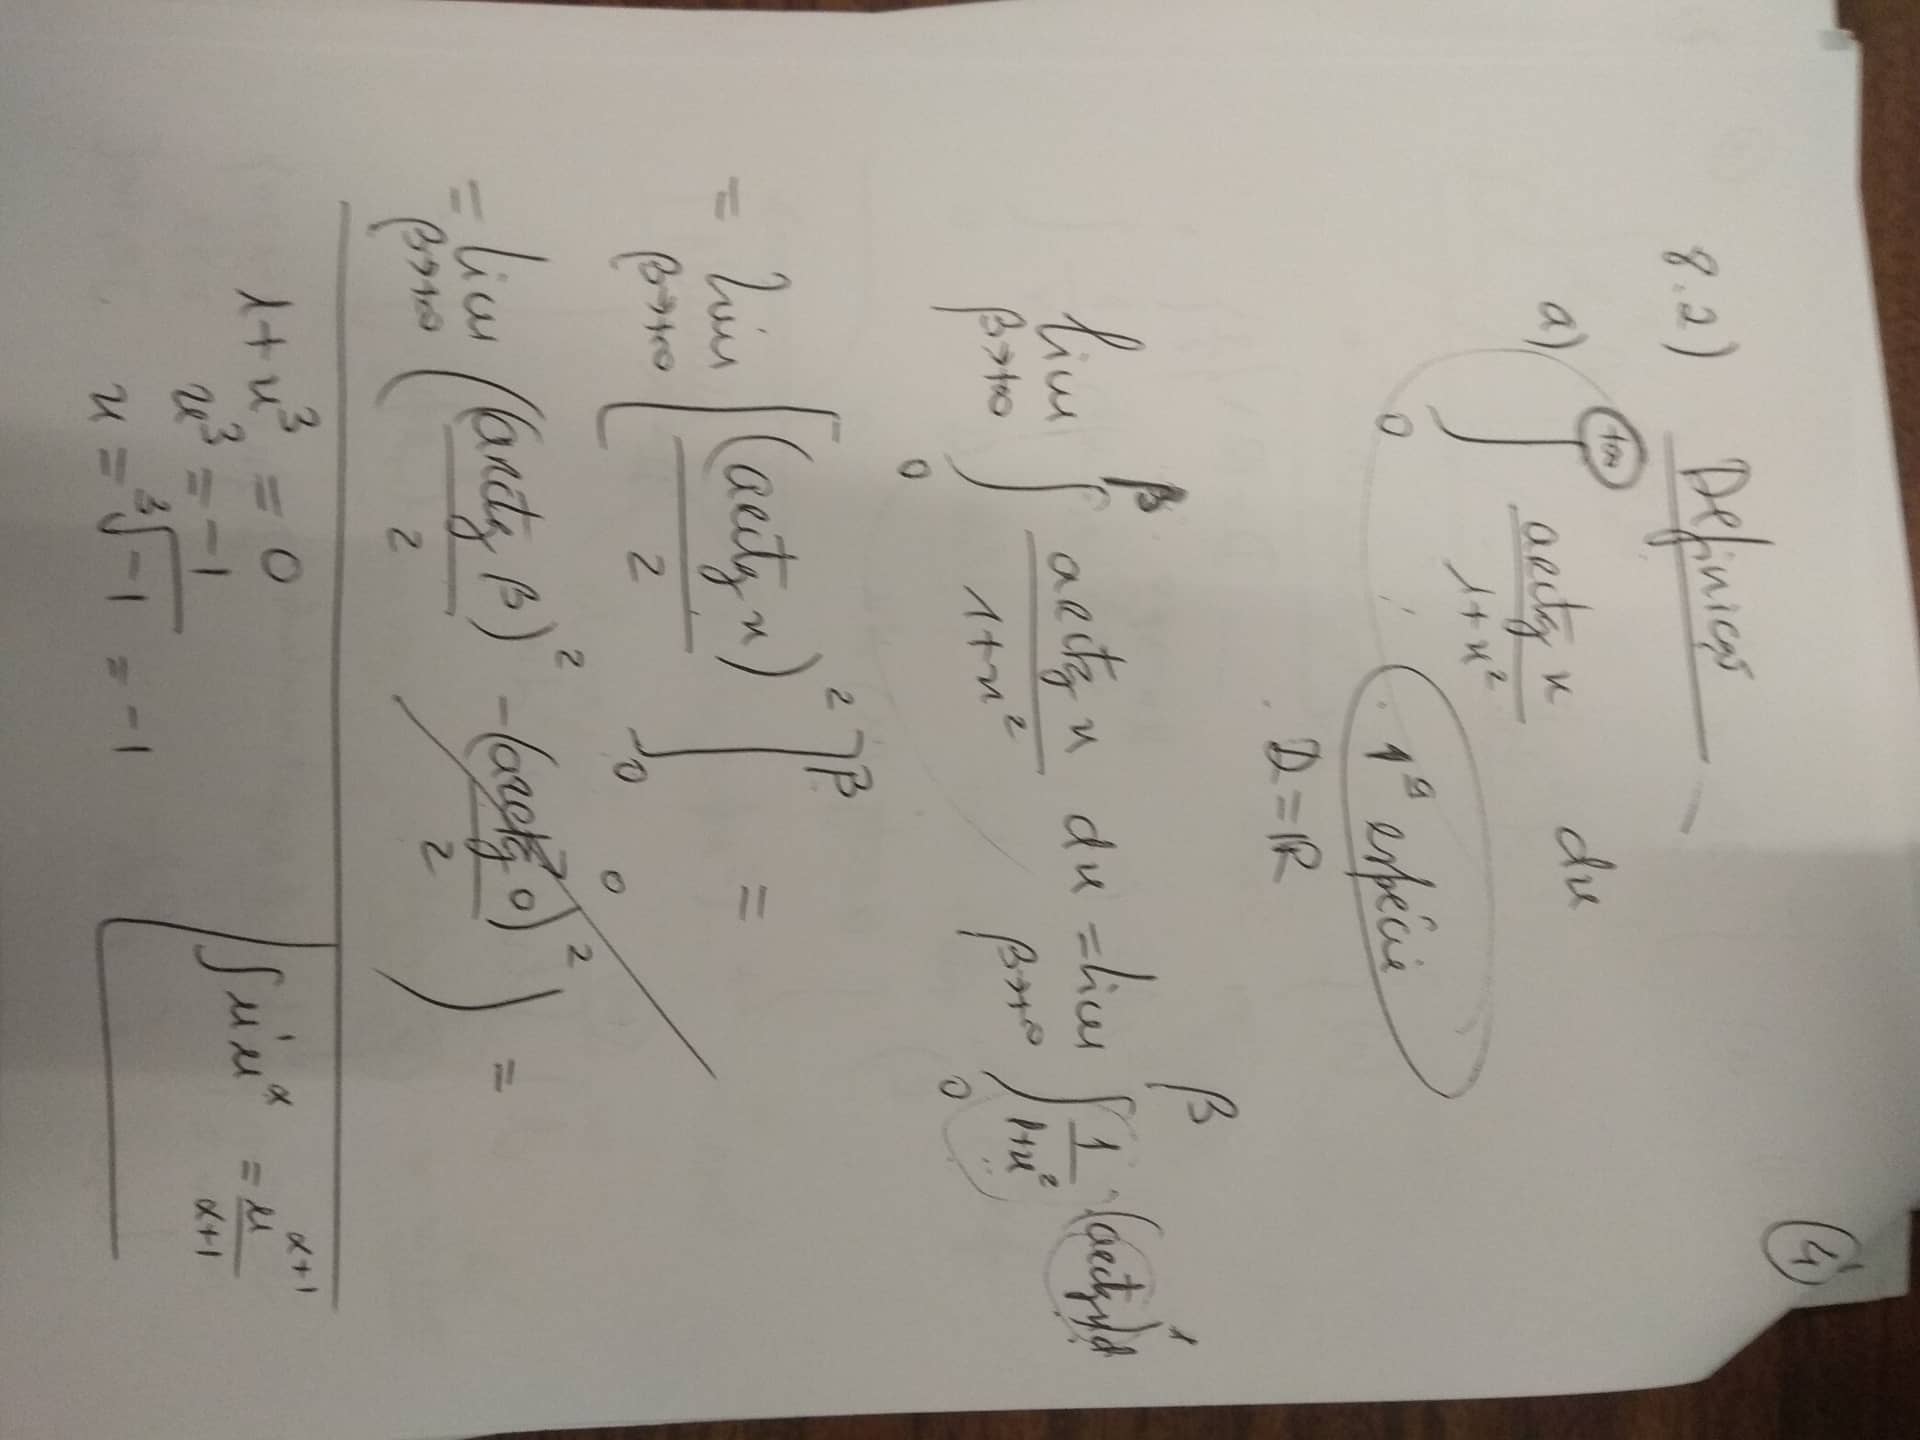 4
8.2) Definição
a) ∫₀^{+∞} arctg x / 1+x² dx
1ª espécie
D = ℝ
lim_{β→+∞} ∫₀^β arctg x / 1+x² dx = lim_{β→+∞} ∫₀^β 1/1+x² · (arctg x)¹ d
= lim_{β→+∞} [(arctg x)² / 2]₀^β =
= lim_{β→+∞} ((arctg β)² / 2 - (arctg 0)² / 2) = 0
1+x³ = 0
x³ = -1
x = ³√-1 = -1
∫ u' u^α = u^{α+1} / α+1